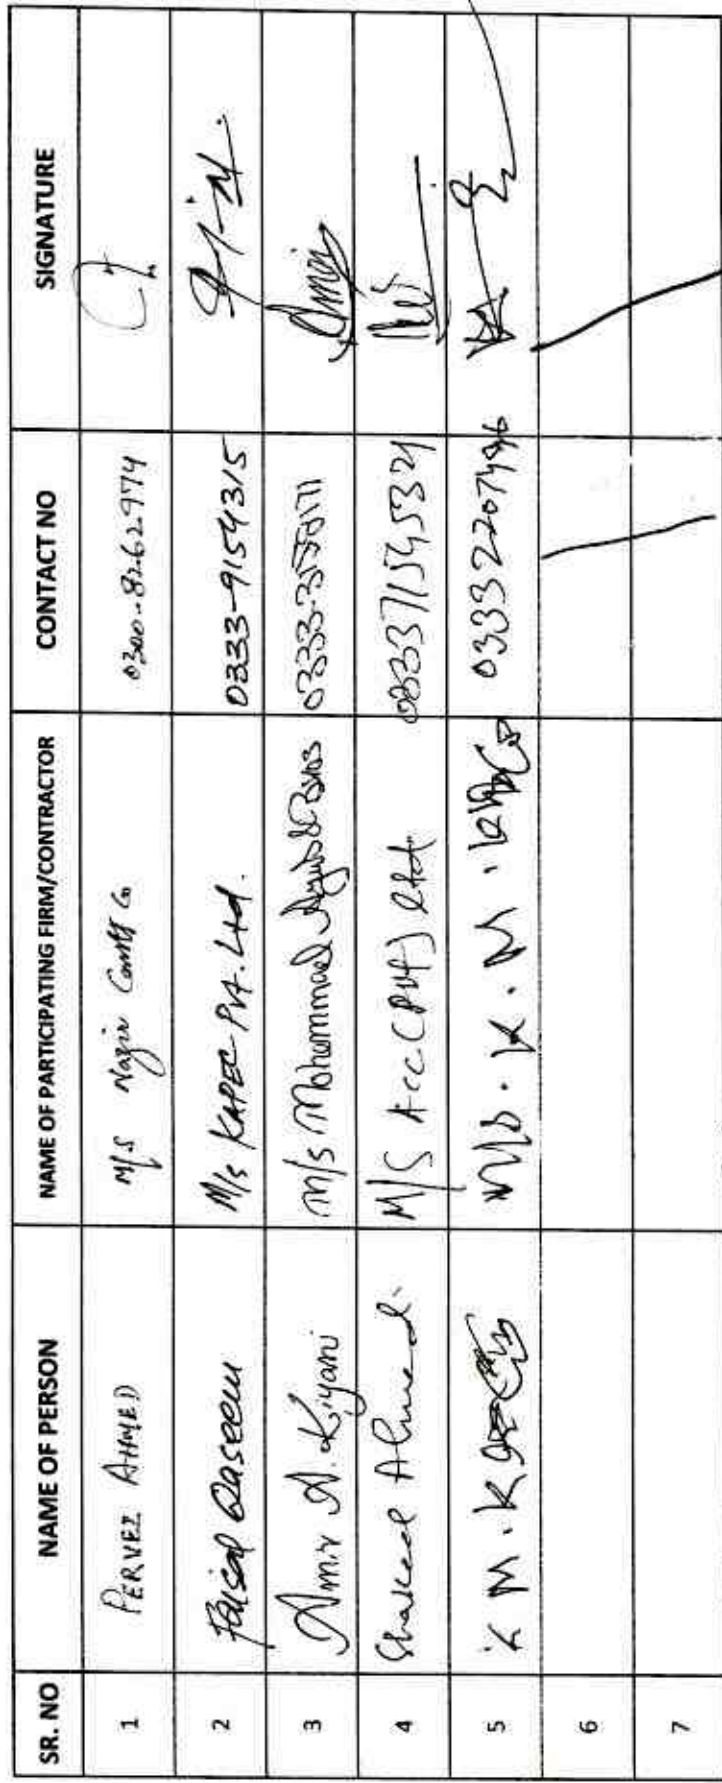 SR. NO NAME OF PERSON NAME OF PARTICIPATING FIRM/CONTRACTOR CONTACT NO SIGNATURE
1 PERVEZ AHMED M/S Nazir Const Co 0300-8262974
2 Faisal Qaseem M/s KAPEC Pvt. Ltd. 0333-9154315
3 Amir A. Kiyani M/s Mohammad Ayub & Bros
4 Shakeel Ahmed M/S Acc (Pvt) Ltd 03337154532
5 K M. K 03332207496
6
7